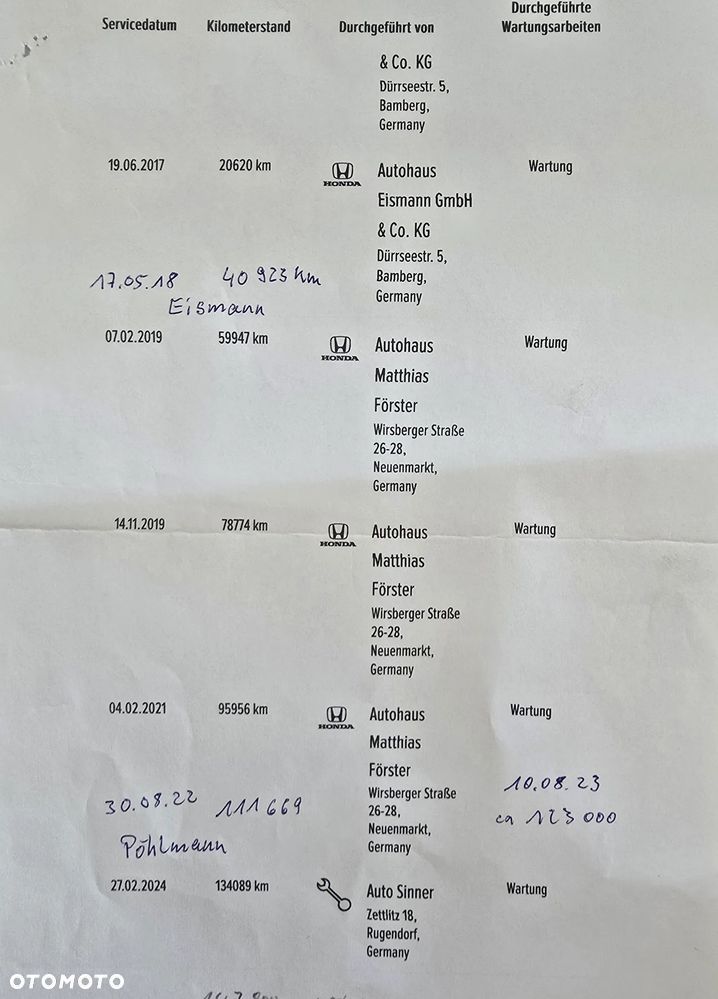 Servicedatum Kilometerstand Durchgeführt von Durchgeführte Wartungsarbeiten
& Co. KG
Dürrseestr. 5,
Bamberg,
Germany
19.06.2017 20620 km HONDA Autohaus Wartung
Eismann GmbH
& Co. KG
Dürrseestr. 5,
Bamberg,
Germany
17.05.18 40 923 km
Eismann
07.02.2019 59947 km HONDA Autohaus Wartung
Matthias
Förster
Wirsberger Straße
26-28,
Neuenmarkt,
Germany
14.11.2019 78774 km HONDA Autohaus Wartung
Matthias
Förster
Wirsberger Straße
26-28,
Neuenmarkt,
Germany
04.02.2021 95956 km HONDA Autohaus Wartung
Matthias
Förster
Wirsberger Straße
26-28,
Neuenmarkt,
Germany
30.08.22 111669
Pöhlmann
10.08.23
ca 123 000
27.02.2024 134089 km Auto Sinner Wartung
Zettlitz 18,
Rugendorf,
Germany
OTOMOTO